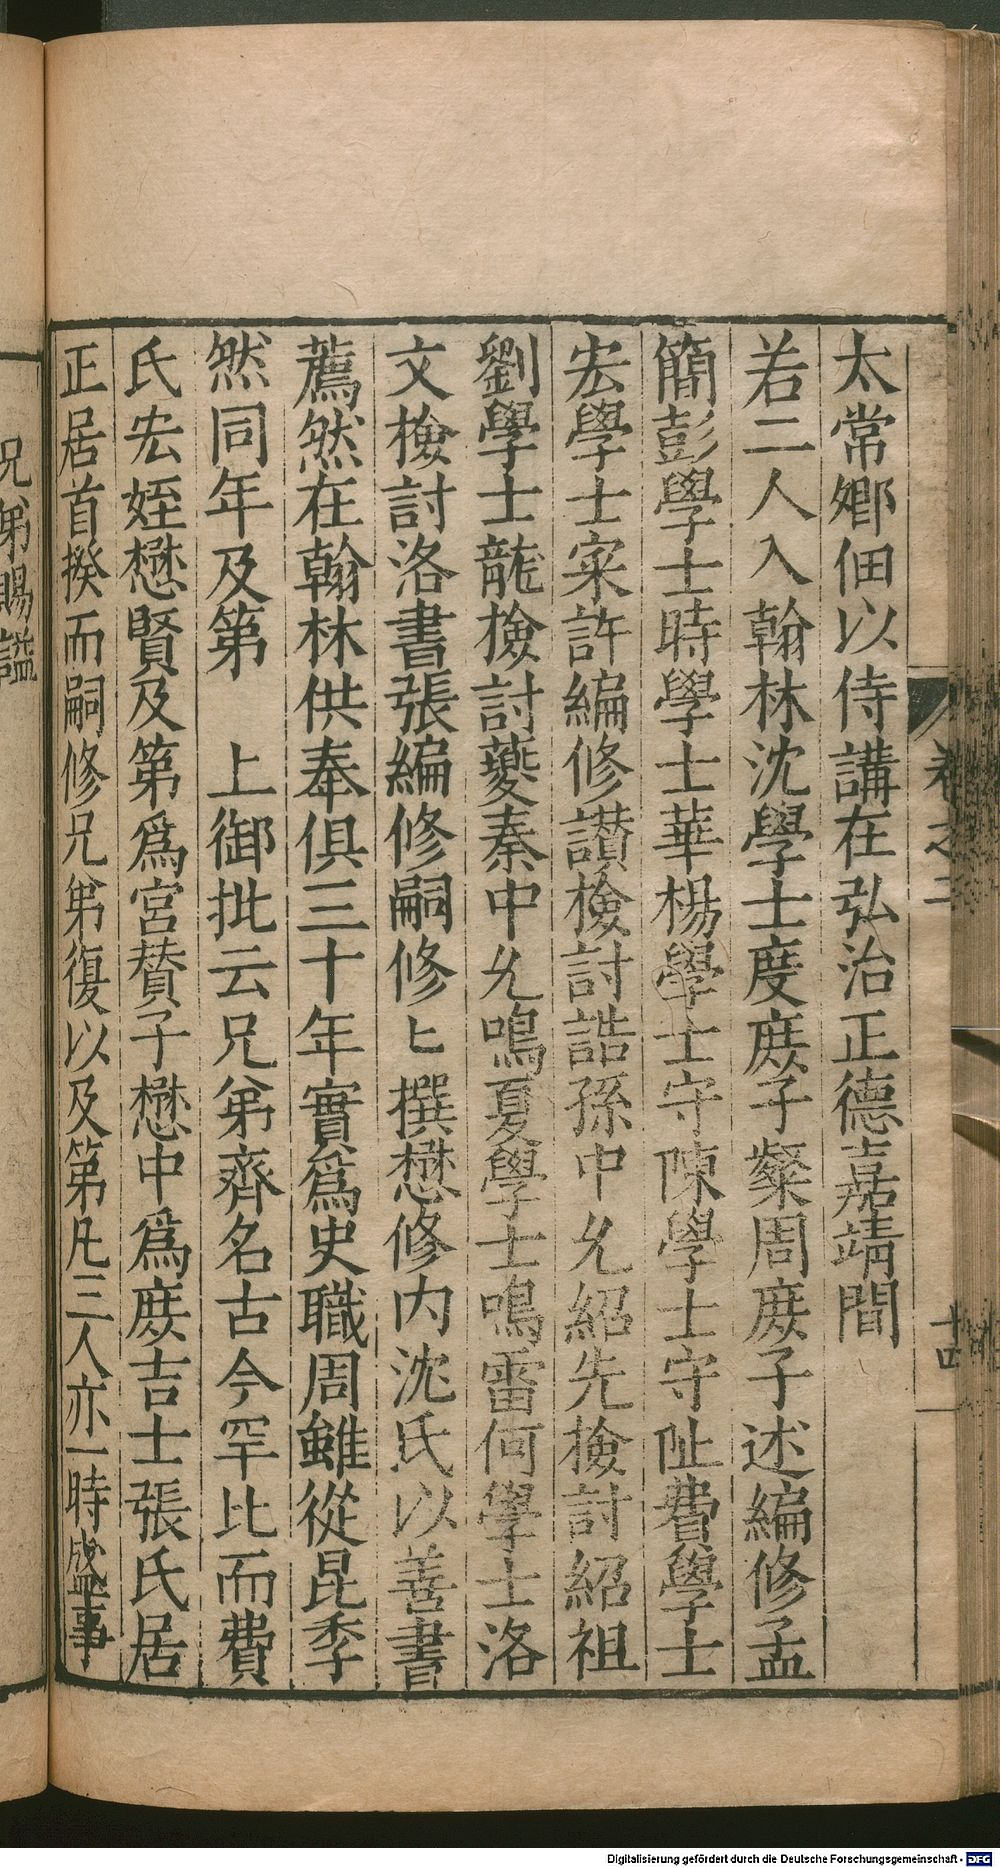 太常鄉佃以侍講在弘治正德嘉靖間
若二人入翰林沈學士度庻子粲周庻子述編修孟
簡彭學士時學士華楊學士守陳學士守阯費學士
宏學士寀許編修讃檢討誥孫中允紹先檢討紹祖
劉學士龍檢討夔秦中允鳴夏學士鳴雷何學士洛
文檢討洛書張編修嗣修匕撰懋修内沈氏以善書
薦然在翰林供奉俱三十年實爲史職周雖從昆季
然同年及第　上御批云兄弟齊名古今罕比而費
氏宏姪懋賢及第爲宮賛子懋中爲庻吉士張氏居
正居首揆而嗣修兄弟復以及第凡三人亦一時盛事
卷之二
十四
兄弟賜諡
Digitalisierung gefördert durch die Deutsche Forschungsgemeinschaft - DFG